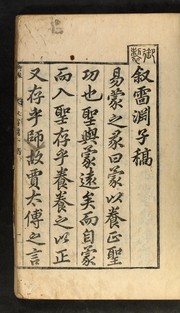 叙雷淵子稿
易蒙之彖曰蒙以養正聖
功也聖與蒙遠矣而自蒙
而入聖存乎養養之以正
又存乎師故賈太傅之言